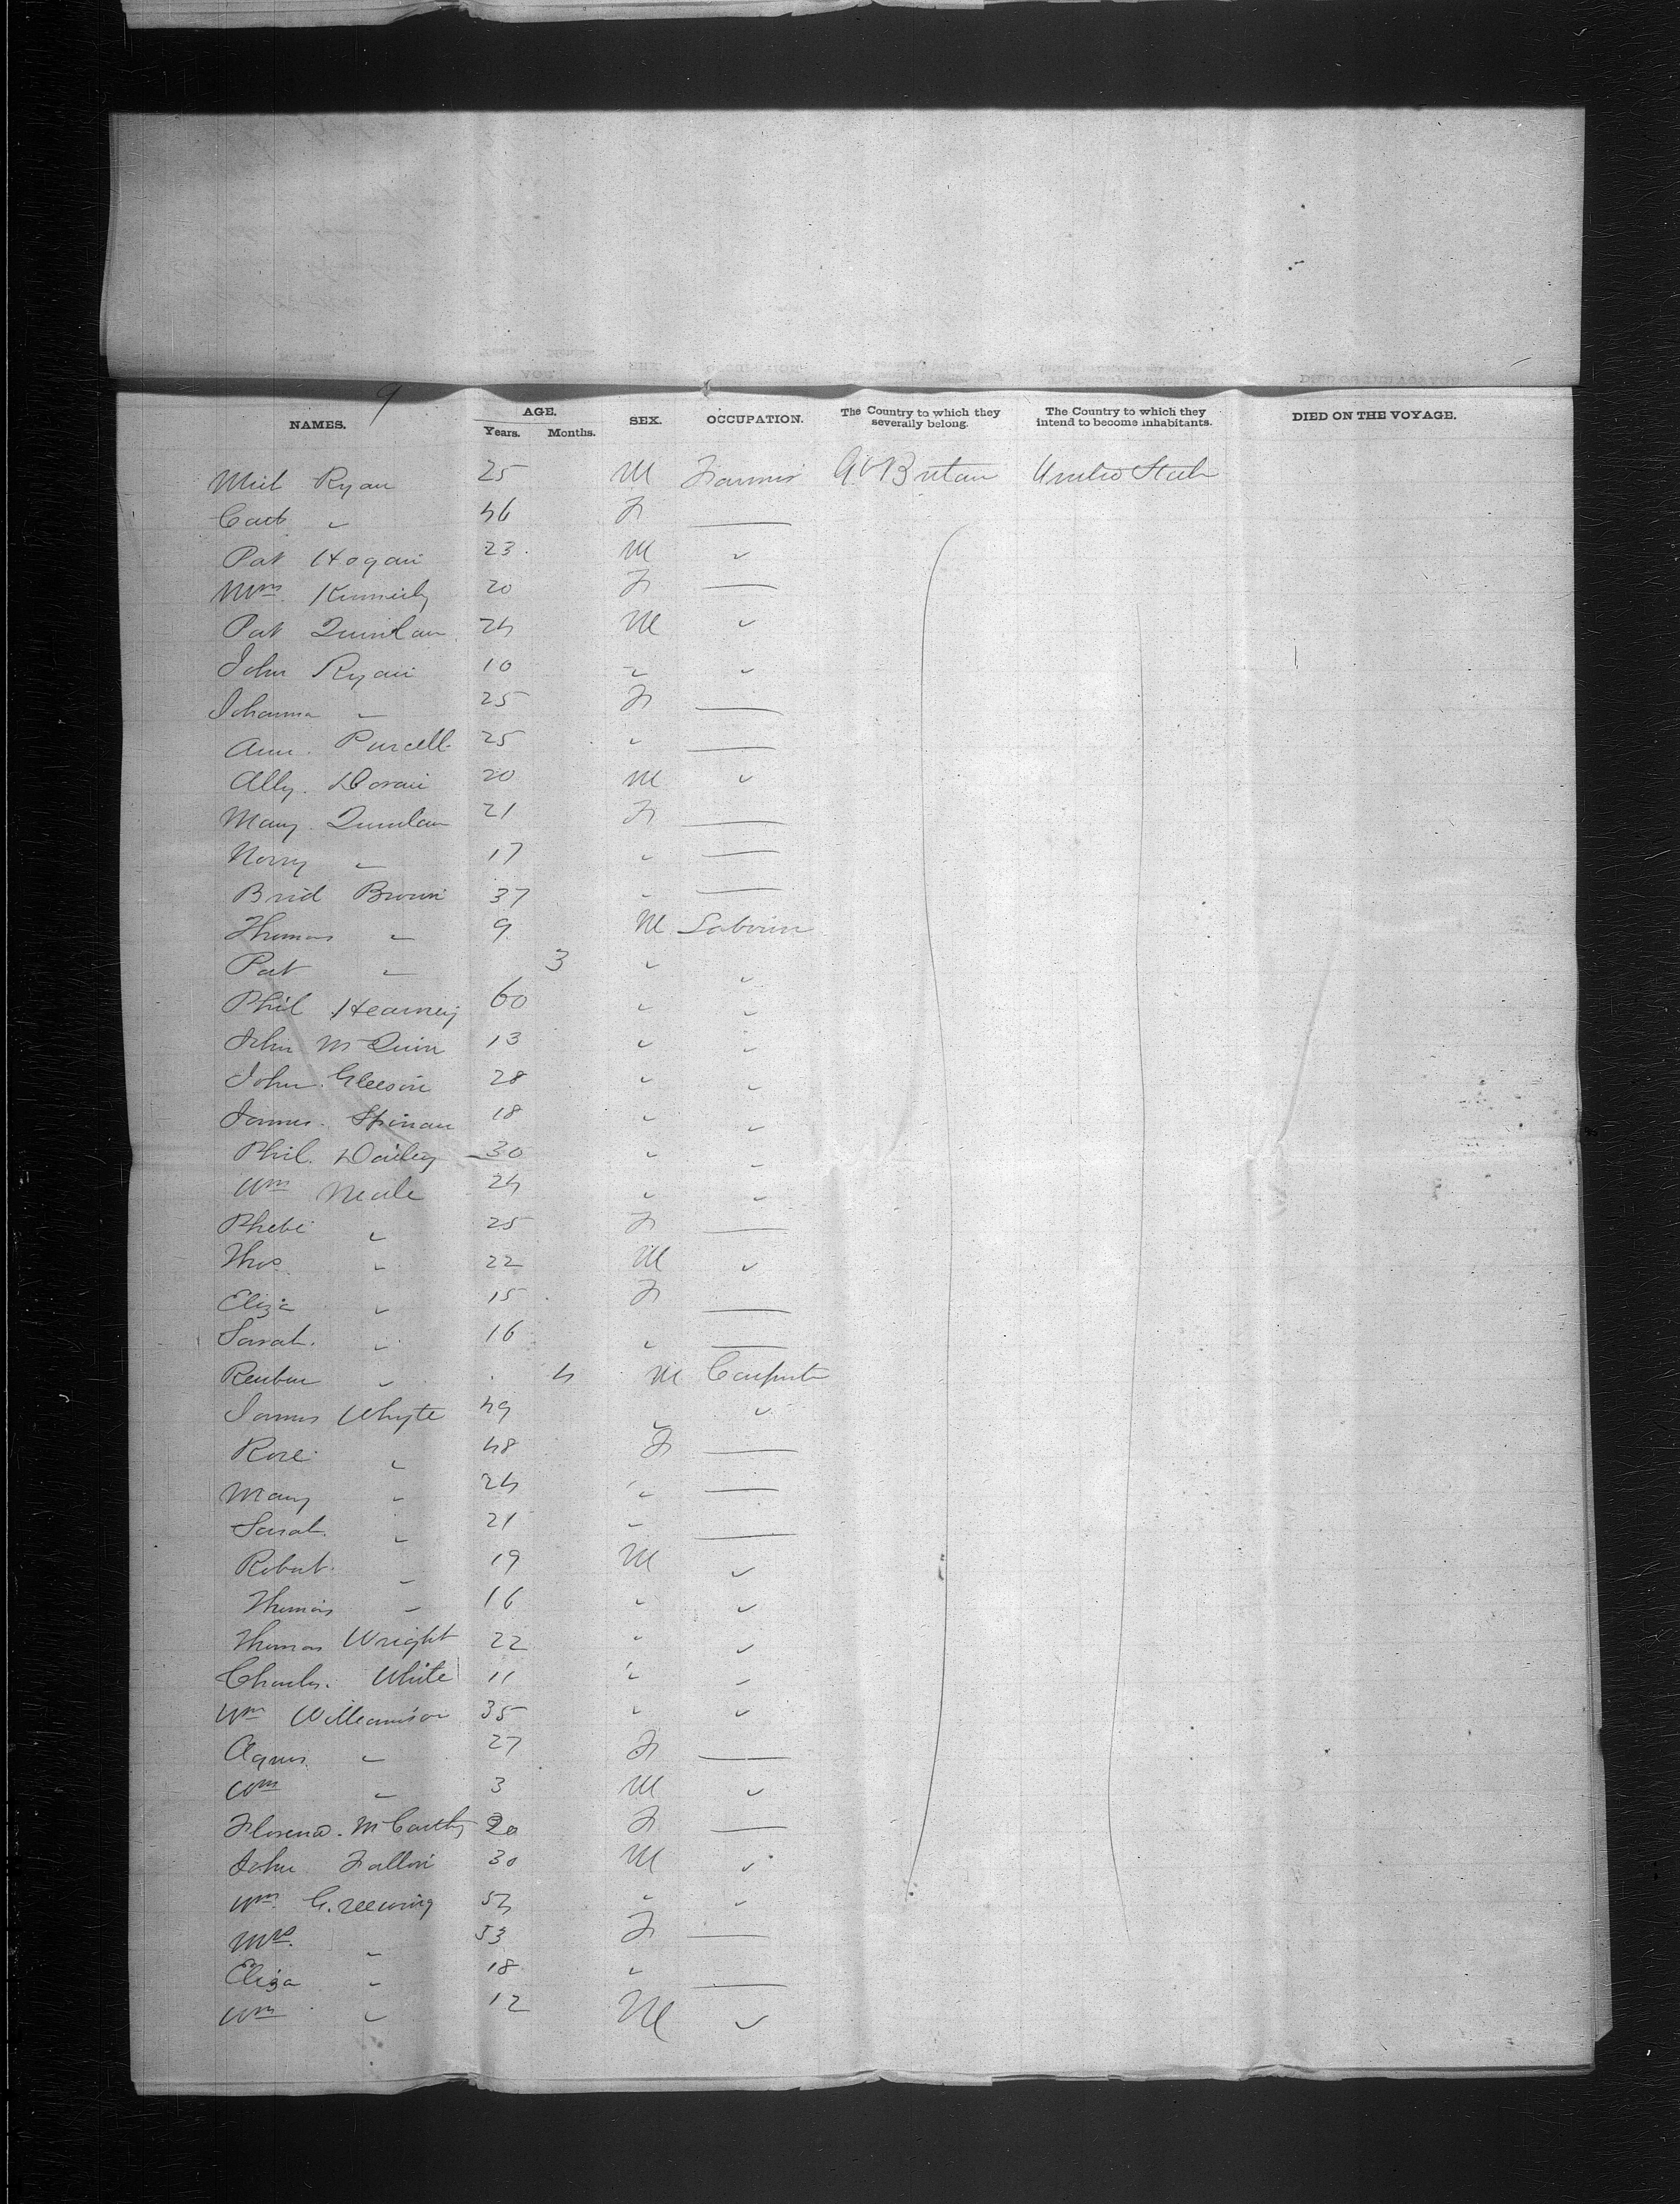 9
NAMES. AGE. SEX. OCCUPATION. The Country to which they severally belong. The Country to which they intend to become inhabitants. DIED ON THE VOYAGE.
Years. Months.
Mich Ryan 25 M Farmer Gt Britain United State
Cath " 46 F —
Pat Hogan 23 M "
Mrs Kennedy 20 F —
Pat Quinlan 24 M "
John Ryan 10 " "
Johanna " 25 F —
Ann Purcell 25 " —
Ally Doran 20 M "
Mary Quinlan 21 F —
Norry " 17 " —
Brid Brown 37 " —
Thomas " 9 M Labourer
Pat " 3 " "
Phil Hearney 60 " "
John McQuin 13 " "
John Gleeson 28 " "
James 18 " "
Phil Dailey 30 " "
Wm Neale 24 " "
Phebe " 25 F —
Thos " 22 M "
Eliza " 15 F —
Sarah " 16 " —
Reuben " 4 M Carpenter
James Whyte 49 " "
Rose " 48 F —
Mary " 24 " —
Sarah " 21 " —
Robert " 19 M "
Thomas " 16 " "
Thomas Wright 22 " "
Charles White 11 " "
Wm Williamson 35 " "
Agnes " 27 F —
Wm " 3 M "
Florence McCarthy 20 F —
John Fallon 30 M "
Wm 54 " "
Mrs " 53 F —
Eliza " 18 " —
Wm " 12 M "